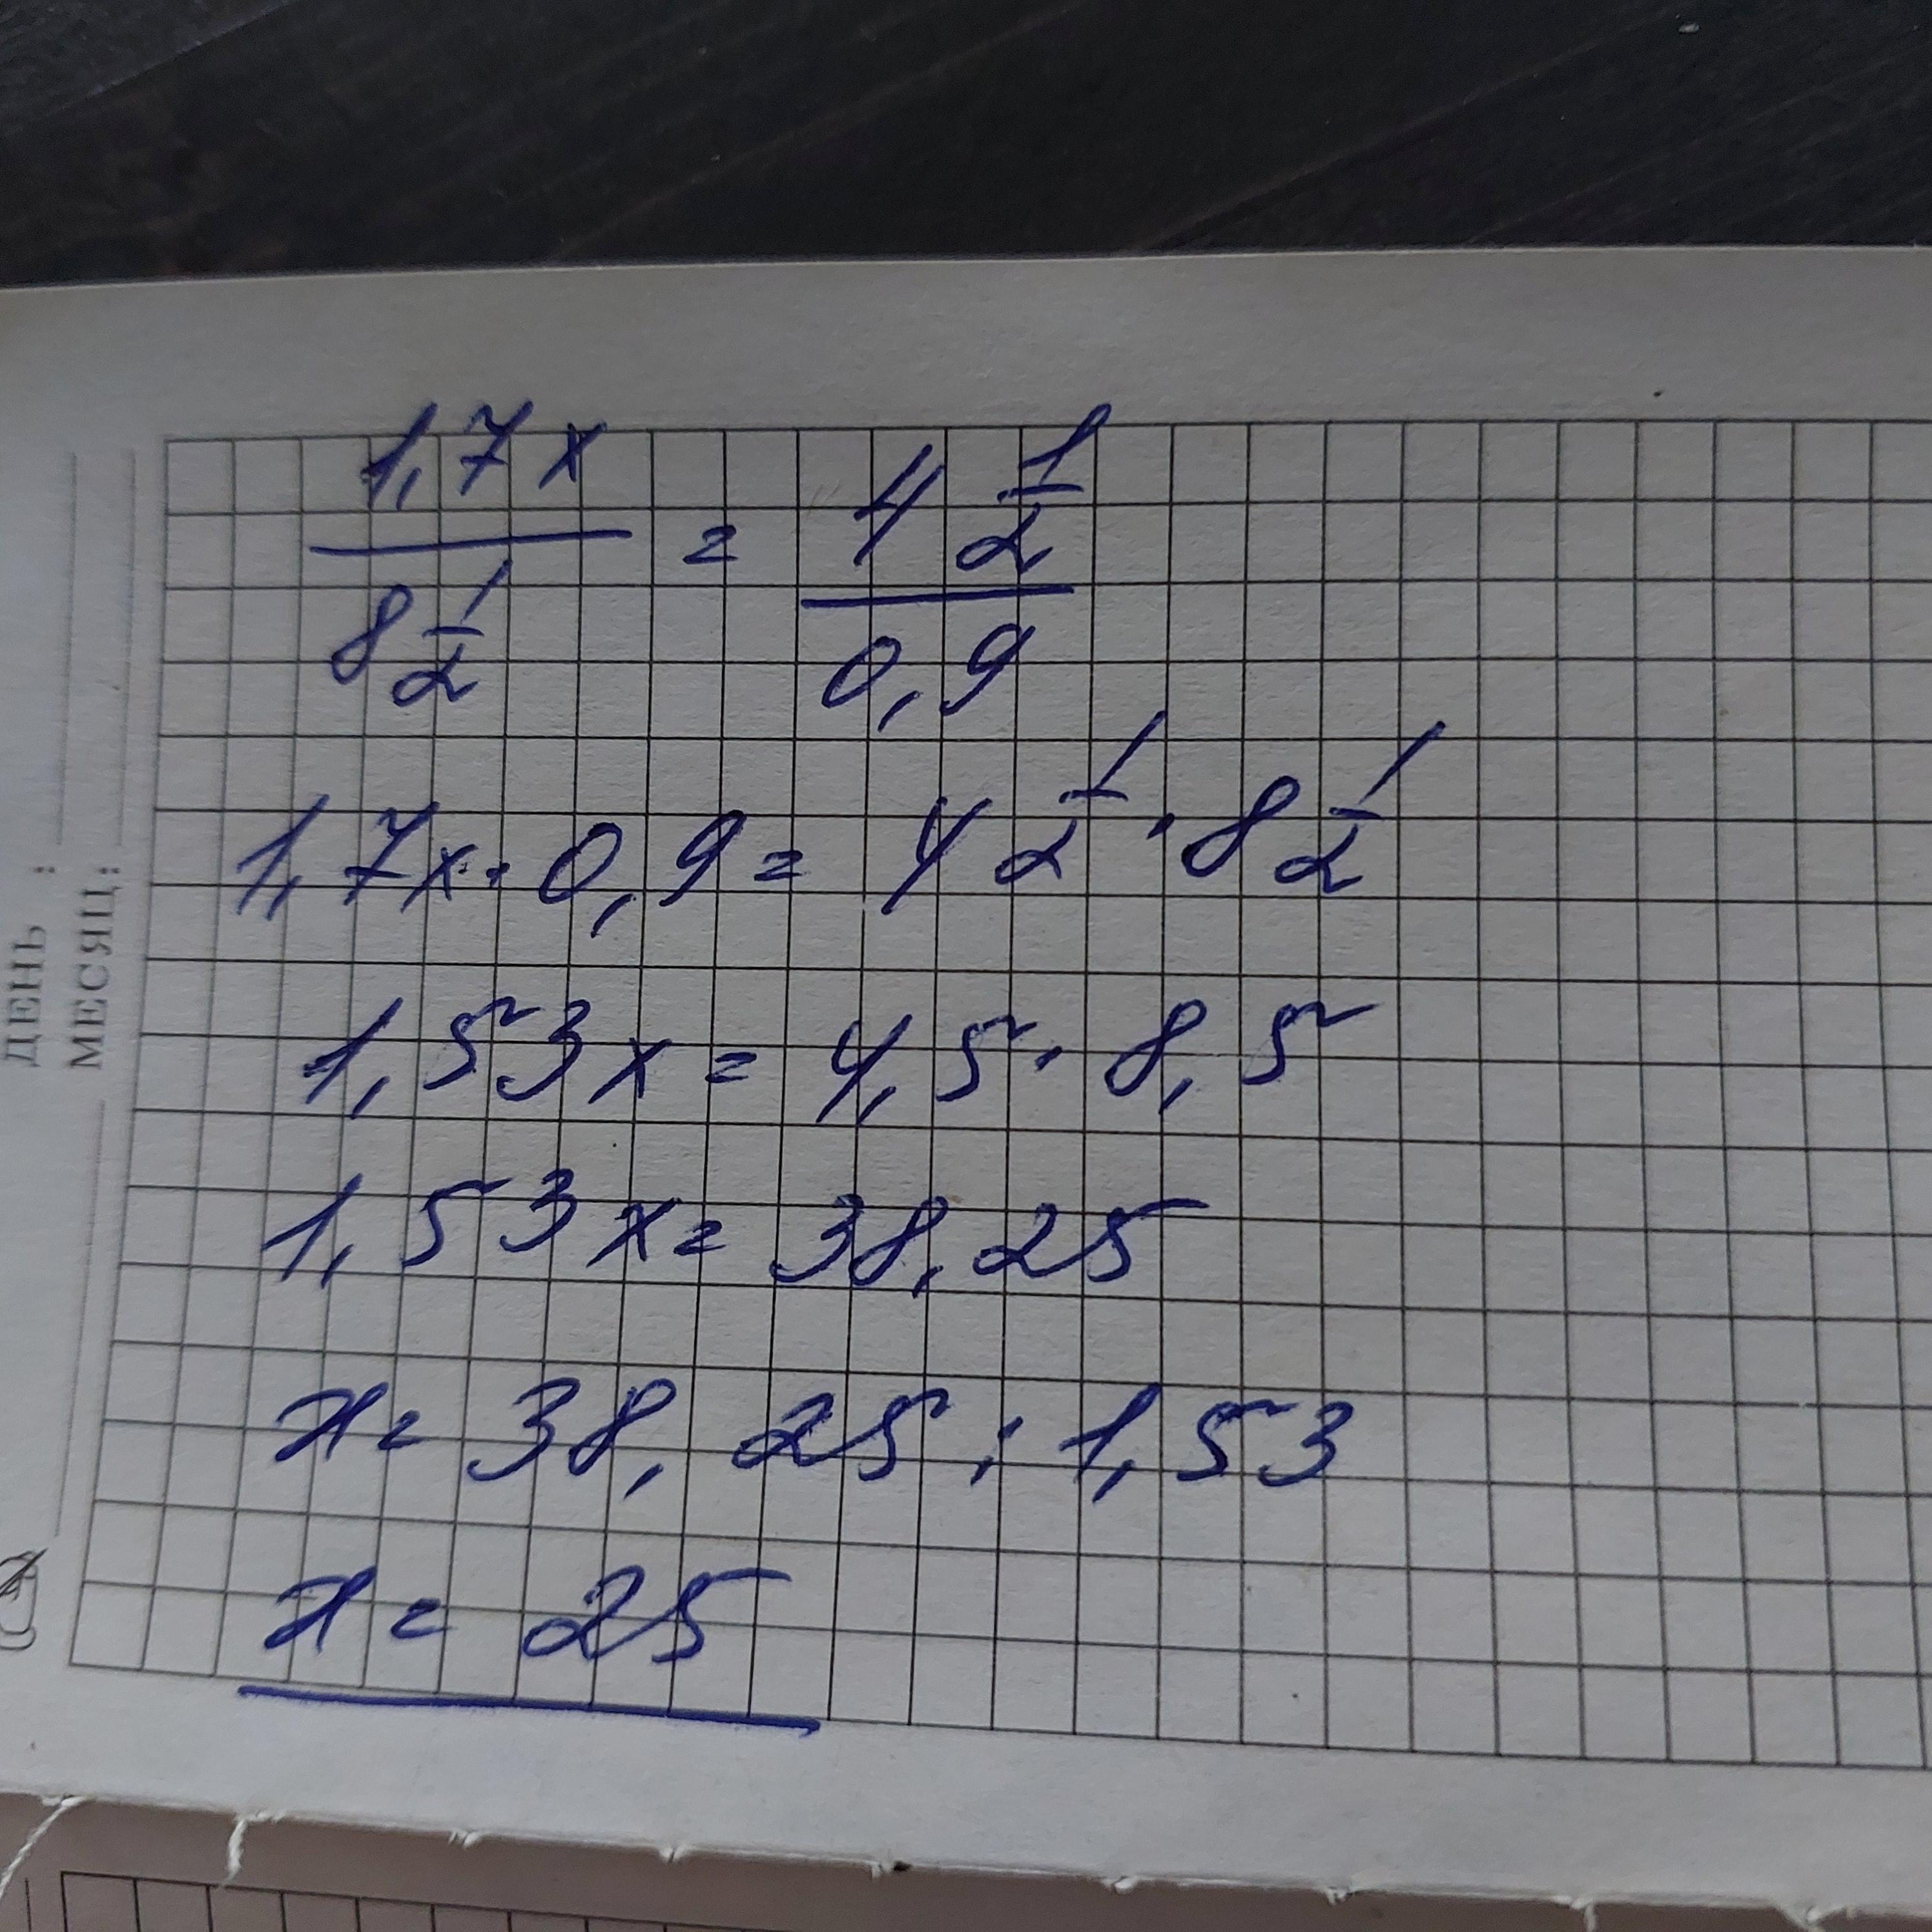 1,7x / 8 1/2 = 4 1/2 / 0,9
1,7x · 0,9 = 4 1/2 · 8 1/2
1,53x = 4,5 · 8,5
1,53x = 38,25
x = 38,25 : 1,53
x = 25
ДЕНЬ :
МЕСЯЦ: